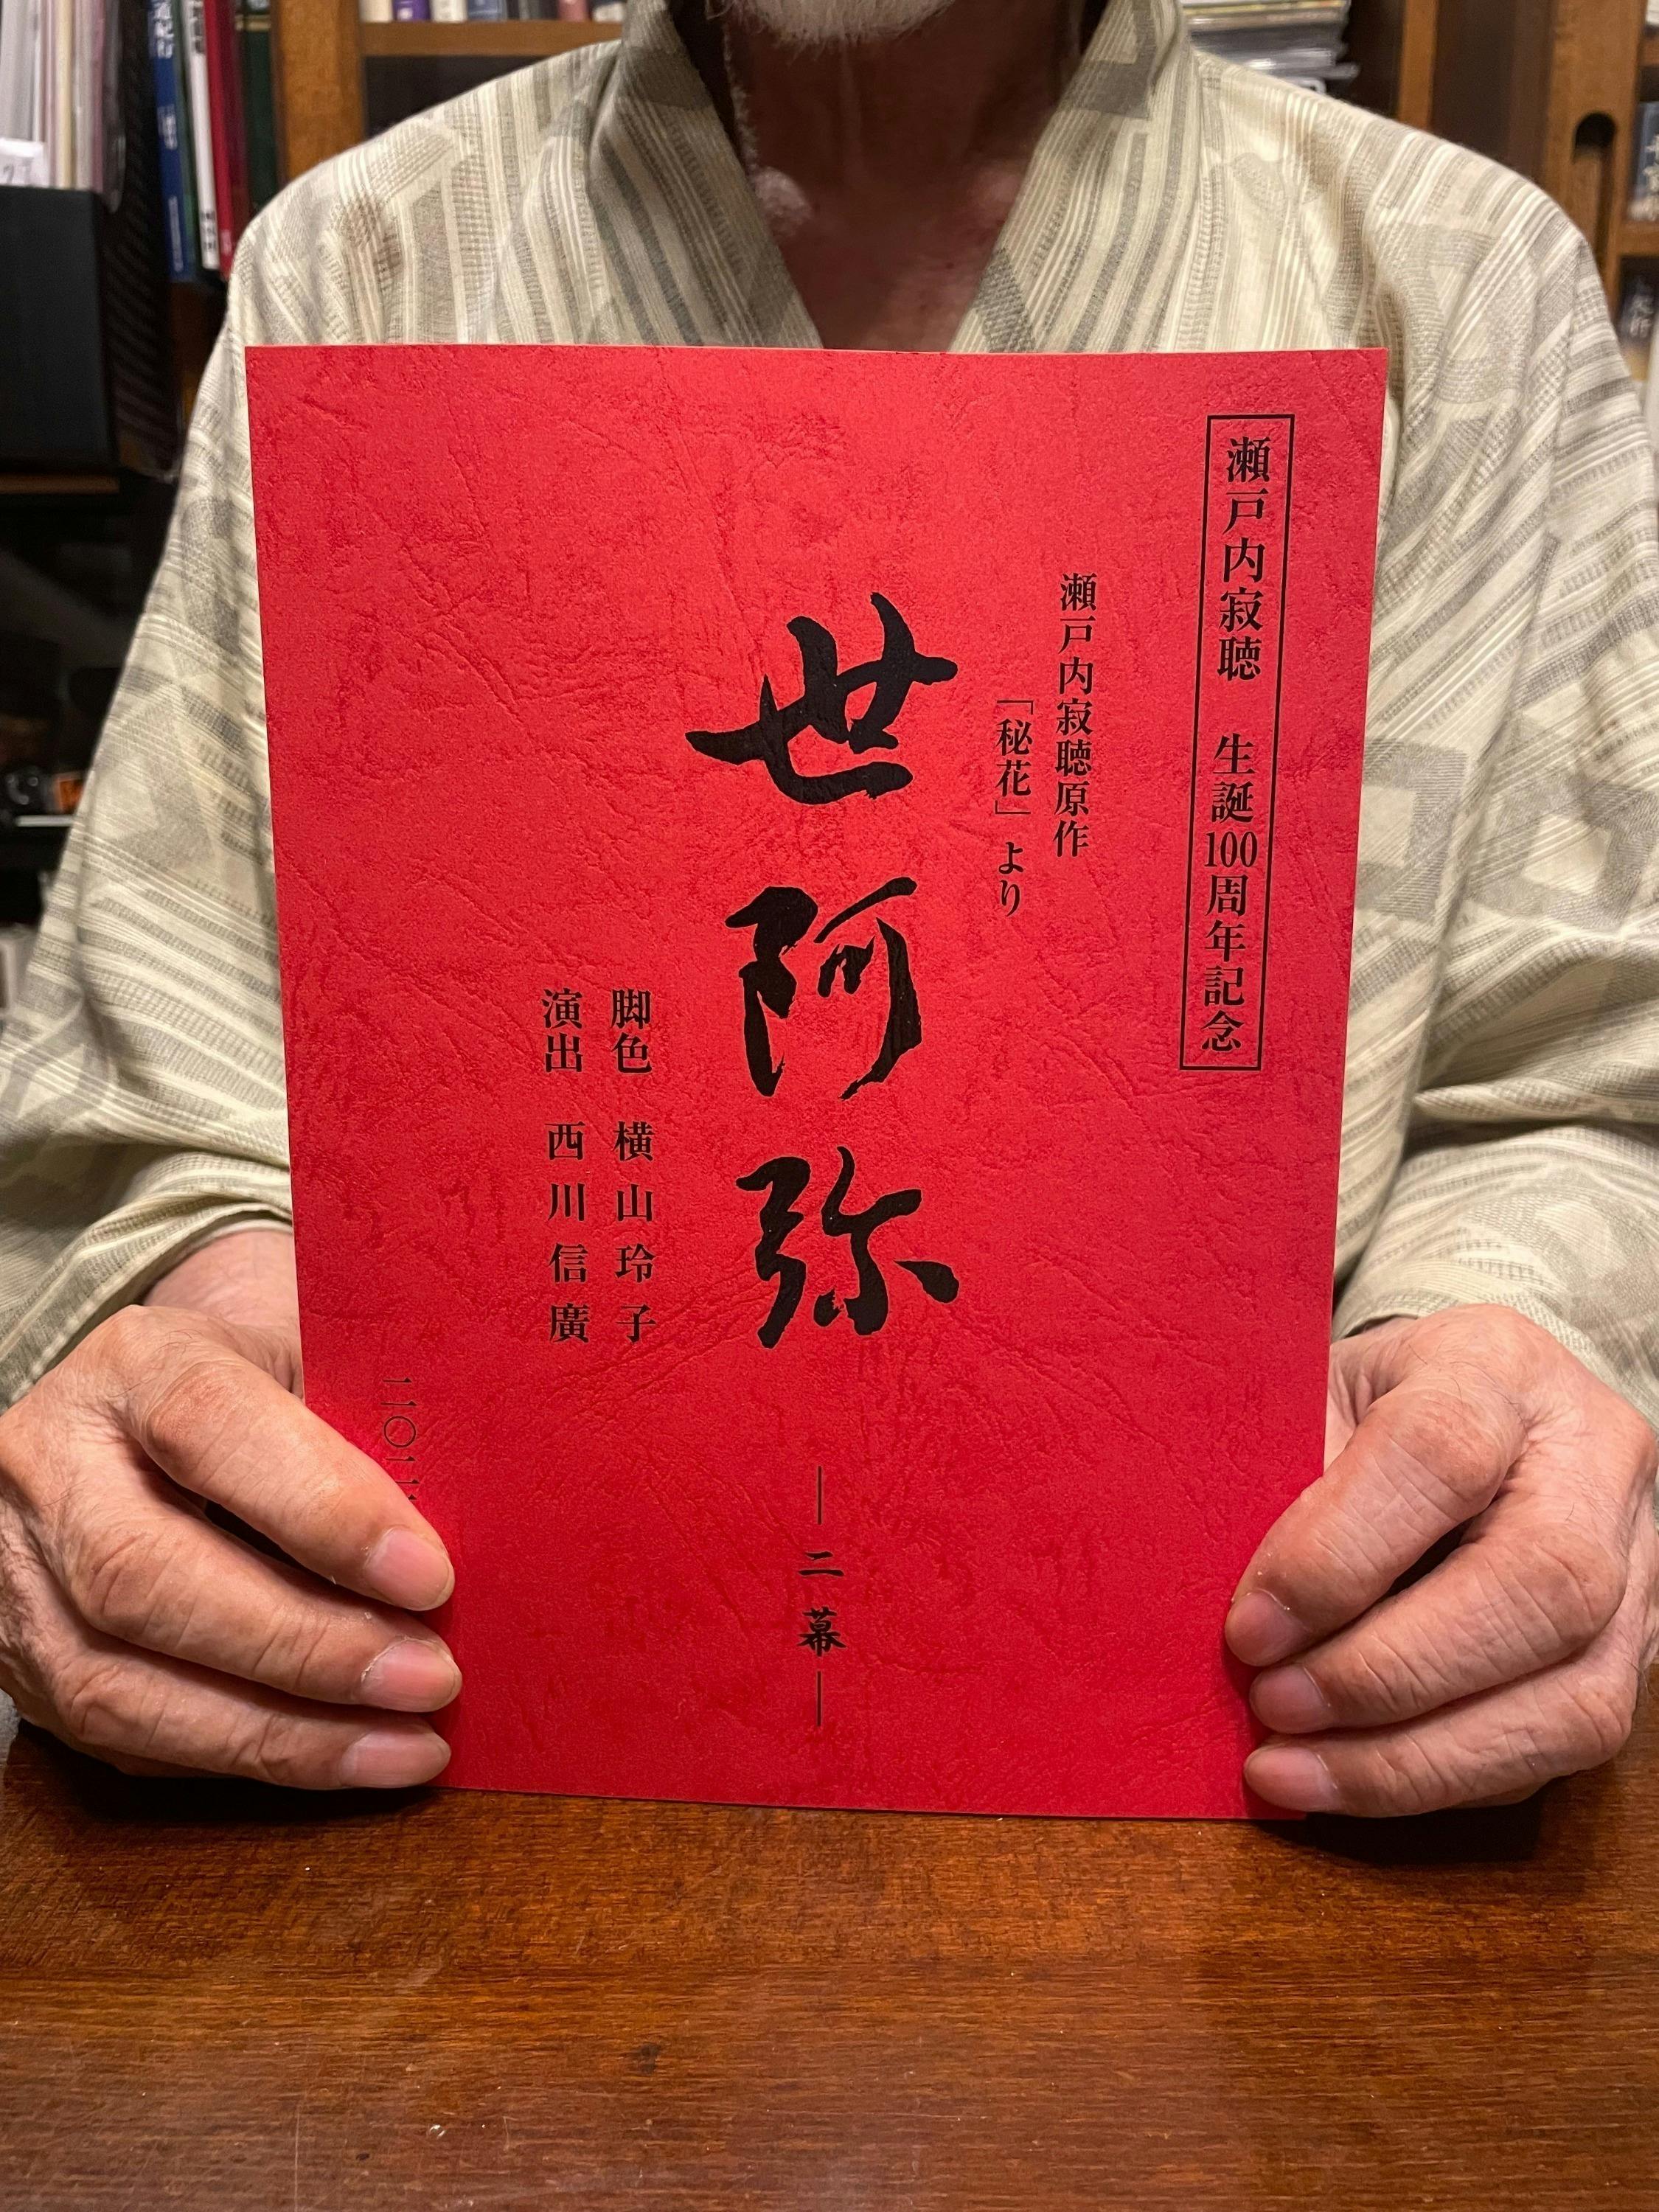 瀬戸内寂聴 生誕100周年記念
瀬戸内寂聴原作
「秘花」より
世阿弥
―二幕―
脚色 横山玲子
演出 西川信廣
二〇二